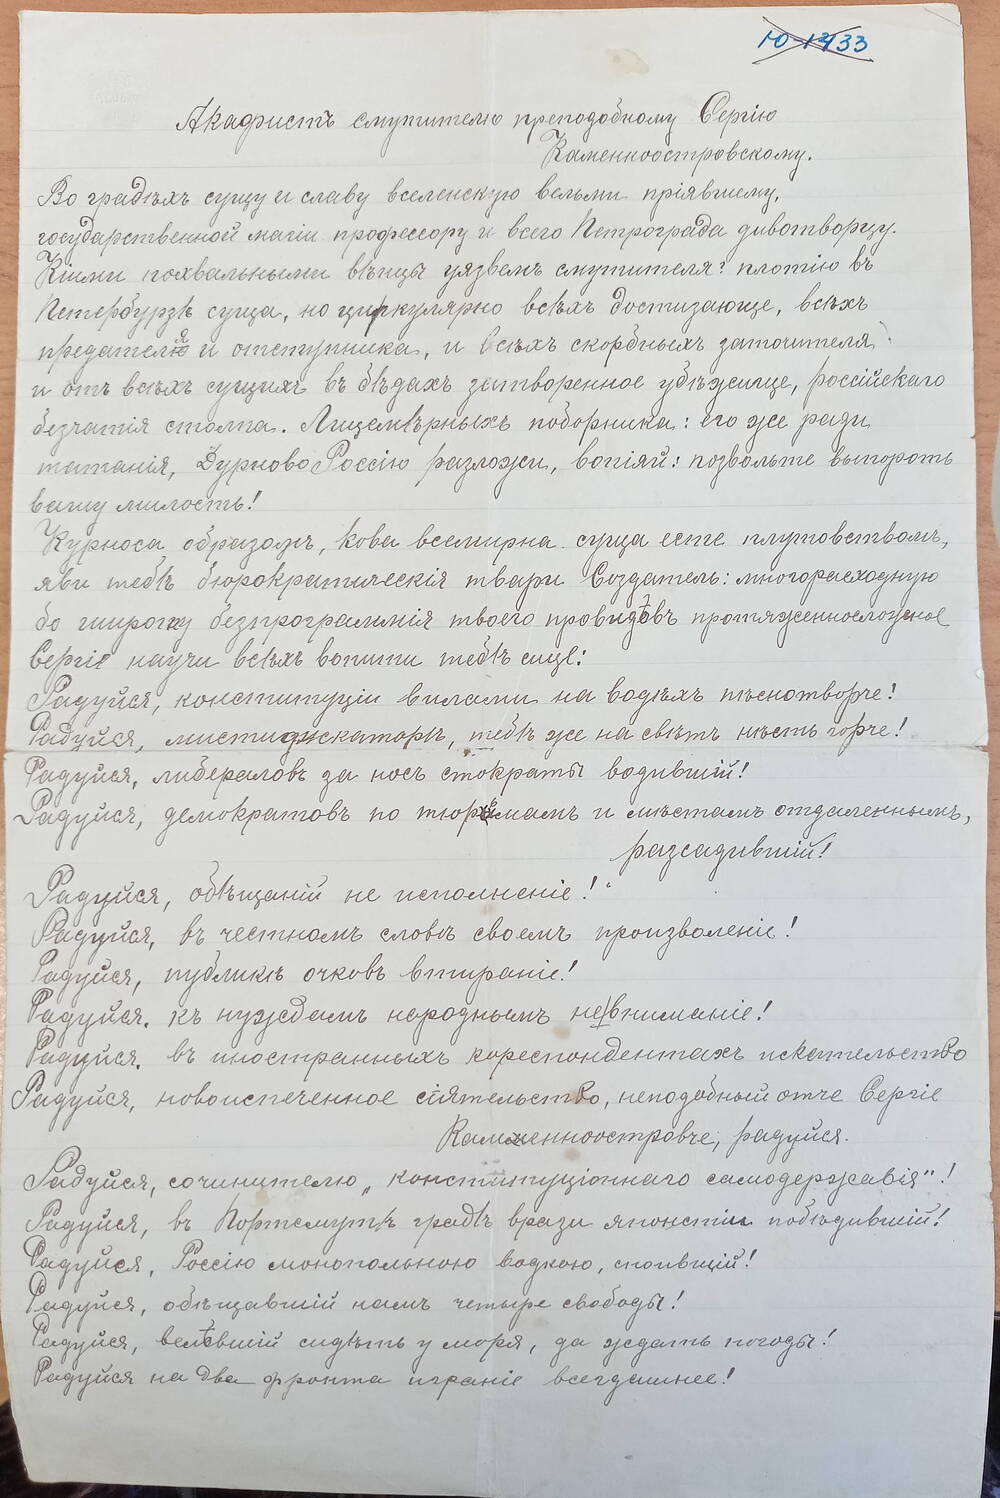 Ю-1433
Акафистъ смутителю преподобному Сергію
Каменноостровскому.
Во градѣхъ сущу и славу вселенскую вельми пріявшему,
государственной магіи профессору и всего Петрограда дивотворцу.
Кіими похвальными вѣнцы уязвемъ смутителя? плотію въ
Петербурзѣ суща, но циркулярно всѣхъ достизающе, всѣхъ
предателя и отступника, и всѣхъ скорбныхъ заточителя
и отъ всѣхъ сущихъ въ бѣдахъ затворенное убѣжище, россійскаго
безчатія столпа. Лицемѣрныхъ поборника: его же ради
татанія, Дурново Россію разложи, вопіяй: позвольте выпороть
вашу милость!
Курноса образомъ, кова всемирна суща есте плутовствомъ,
яви тебѣ бюрократическія твари Создатель: многорасходную
бо широту безпрограммія твоего провидѣвъ протяженносложное
Сергіе научи всѣхъ вопити тебѣ сице:
Радуйся, конституціи вилами на водѣхъ тѣснотворче!
Радуйся, мистификаторъ, тебѣ же на свѣтѣ нѣсть горче!
Радуйся, либераловъ за носъ стократы водившій!
Радуйся, демократовъ по тюрьмамъ и мѣстамъ отдаленнымъ,
разсадившій!
Радуйся, обѣщаній не исполненіе!
Радуйся, въ честномъ словѣ своемъ произволеніе!
Радуйся, публикѣ очковъ втираніе!
Радуйся, къ нуждамъ народнымъ невниманіе!
Радуйся, въ иностранныхъ кореспондентахъ искательство
Радуйся, новоиспеченное сіятельство, неподобный отче Сергіе
Каменноостровче, радуйся.
Радуйся, сочинителю „конституціоннаго самодержавія"!
Радуйся, въ Портсмутѣ градѣ врази японстіи побѣдившій!
Радуйся, Россію монопольною водкою, споившій!
Радуйся, обѣщавшій намъ четыре свободы!
Радуйся, велѣвшій сидѣть у моря, да ждать погоды!
Радуйся на два фронта играніе всегдашнее!